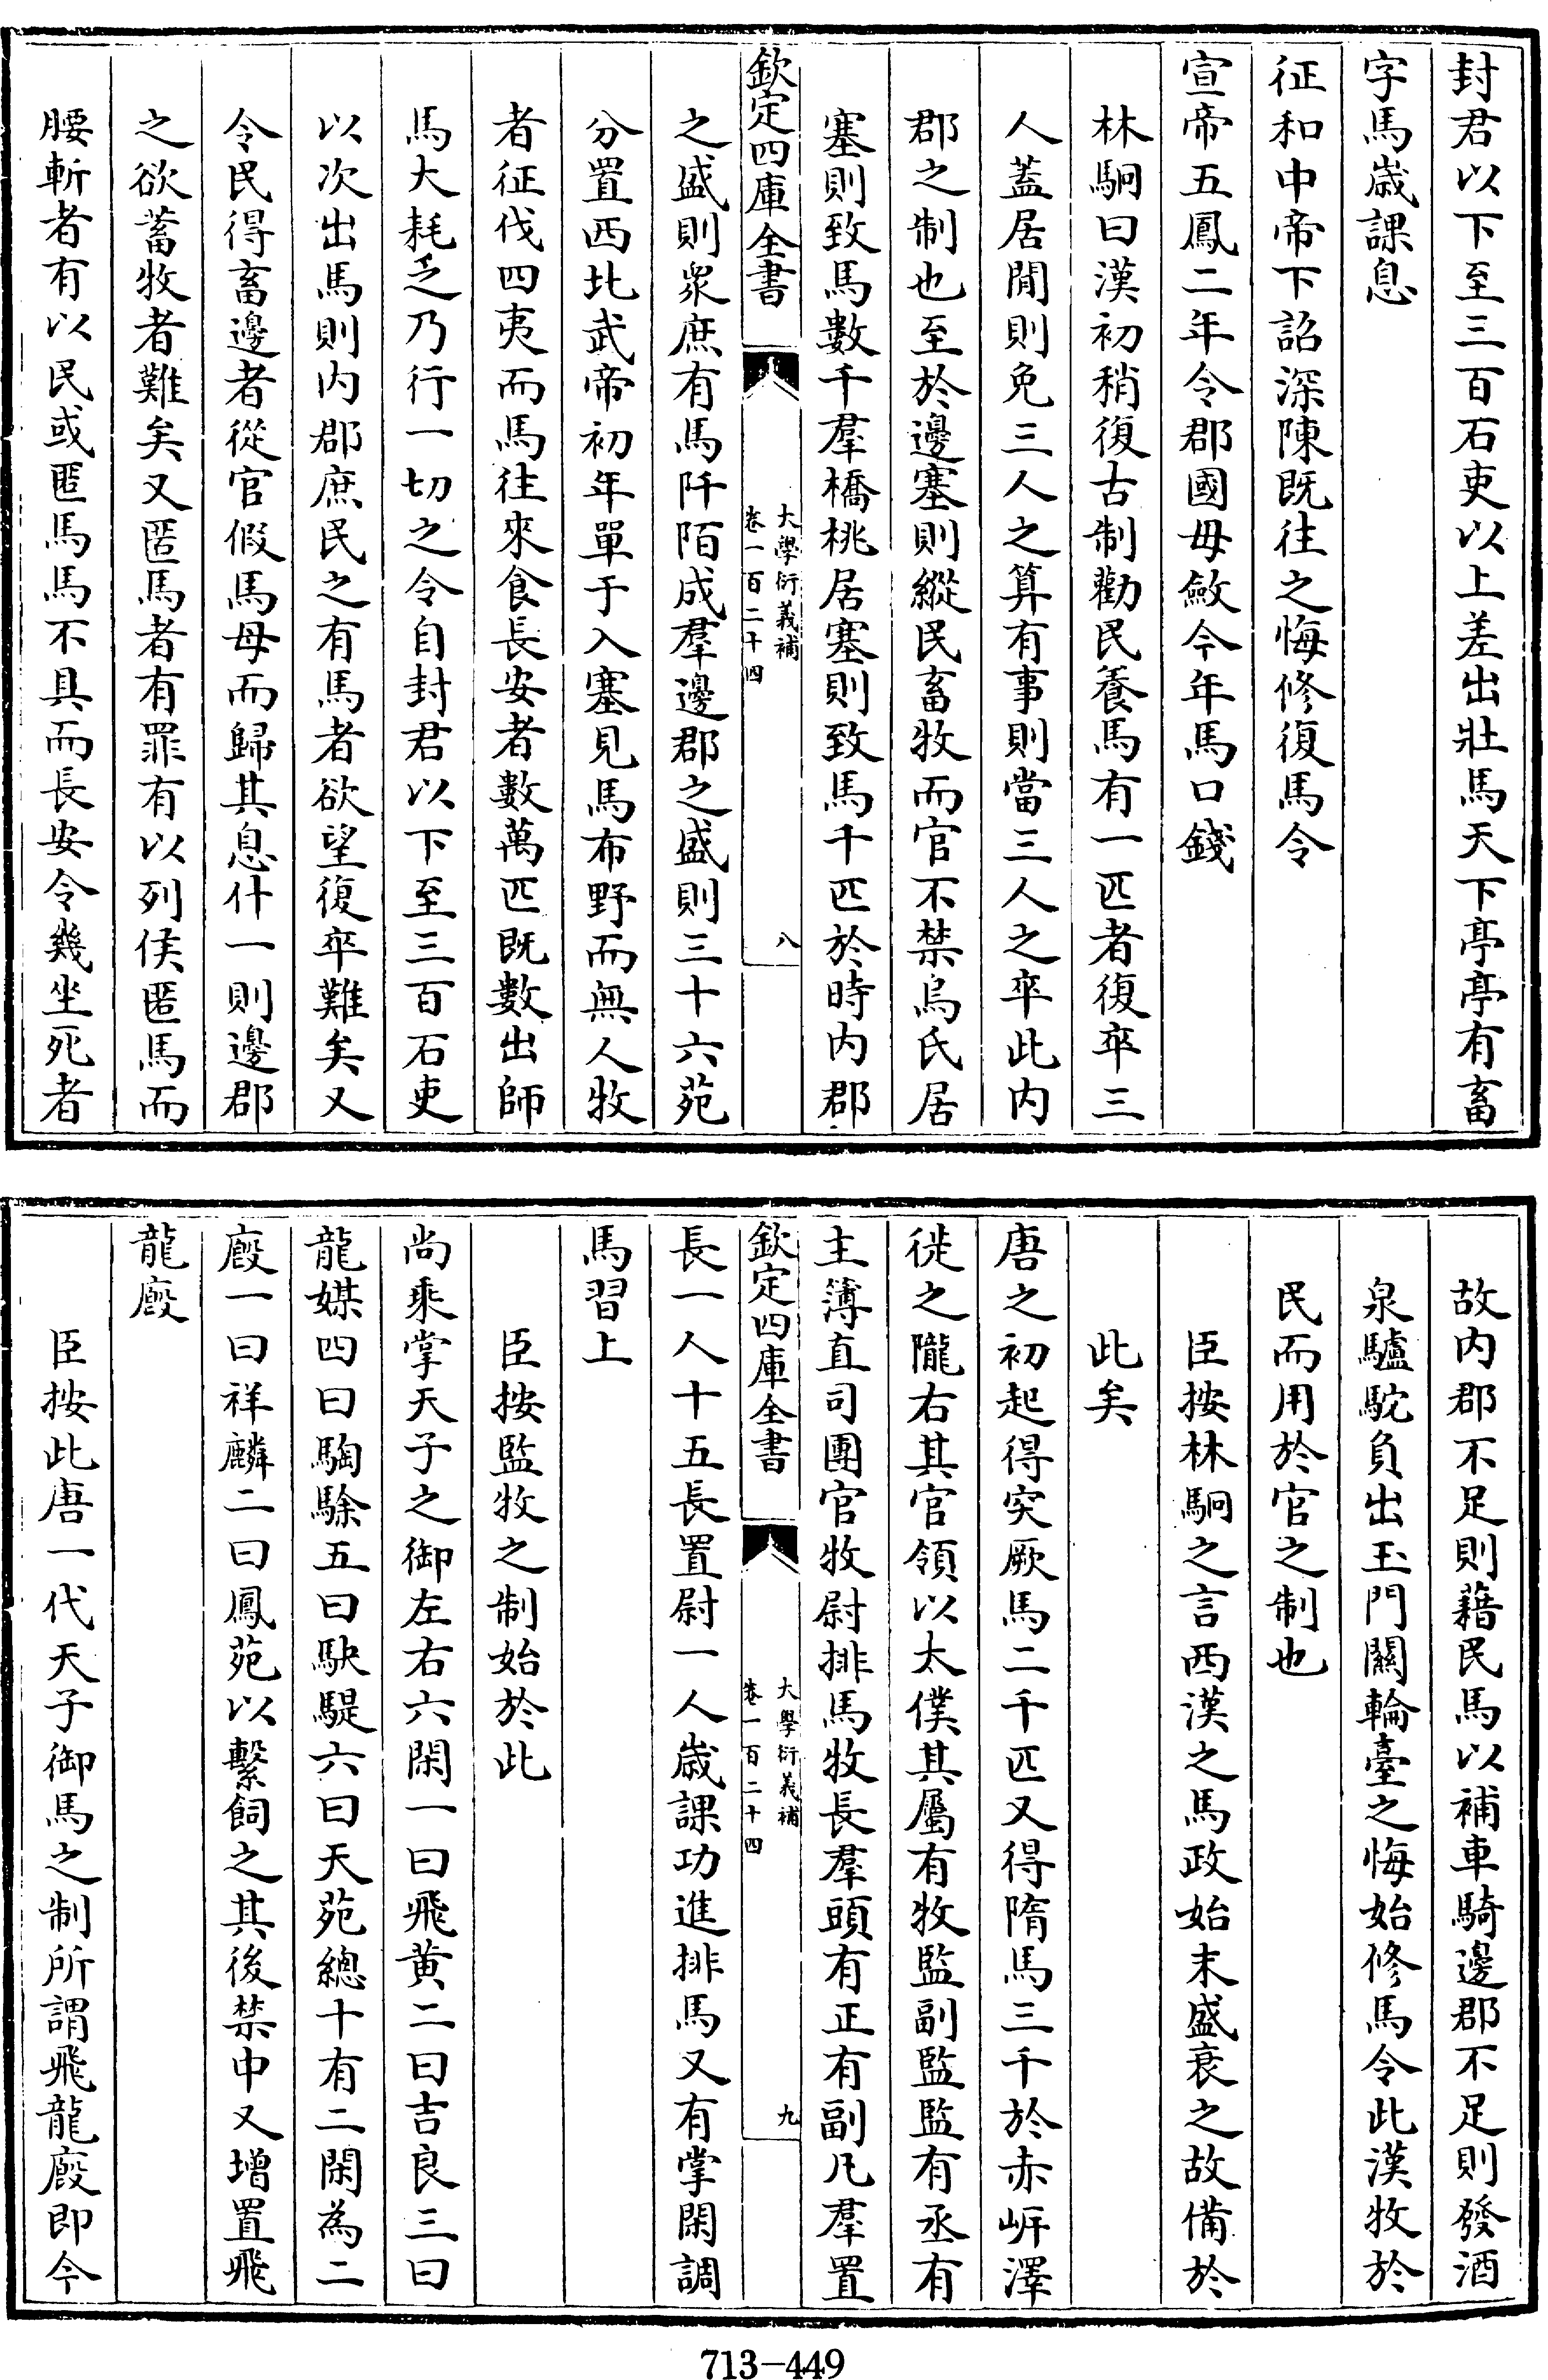 封君以下至三百石吏以上差出壯馬天下亭亭有畜
字馬歲課息
征和中帝下詔深陳既往之悔修復馬令
宣帝五鳳二年令郡國毋斂今年馬口錢
林駉曰漢初稍復古制勸民養馬有一匹者復卒三
人蓋居閒則免三人之算有事則當三人之卒此内
郡之制也至於邊塞則縱民畜牧而官不禁烏氏居
塞則致馬數千羣橋桃居塞則致馬千匹於時内郡
欽定四庫全書
大學衍義補
卷一百二十四
八
之盛則衆庶有馬阡陌成羣邊郡之盛則三十六苑
分置西北武帝初年單于入塞見馬布野而無人牧
者征伐四夷而馬往來食長安者數萬匹既數出師
馬大耗乏乃行一切之令自封君以下至三百石吏
以次出馬則内郡庶民之有馬者欲望復卒難矣又
令民得畜邊者從官假馬母而歸其息什一則邊郡
之欲蓄牧者難矣又匿馬者有罪有以列侯匿馬而
腰斬者有以民或匿馬馬不具而長安令幾坐死者
故内郡不足則藉民馬以補車騎邊郡不足則發酒
泉驢駝負出玉門關輪臺之悔始修馬令此漢牧於
民而用於官之制也
臣按林駉之言西漢之馬政始末盛衰之故備於
此矣
唐之初起得突厥馬二千匹又得隋馬三千於赤岍澤
徙之隴右其官領以太僕其屬有牧監副監監有丞有
主簿直司團官牧尉排馬牧長羣頭有正有副凡羣置
欽定四庫全書
大學衍義補
卷一百二十四
九
長一人十五長置尉一人歲課功進排馬又有掌閑調
馬習上
臣按監牧之制始於此
尚乘掌天子之御左右六閑一曰飛黄二曰吉良三曰
龍媒四曰騊駼五曰駃騠六曰天苑總十有二閑為二
廐一曰祥麟二曰鳳苑以繫飼之其後禁中又增置飛
龍廐
臣按此唐一代天子御馬之制所謂飛龍廐即今
713-449